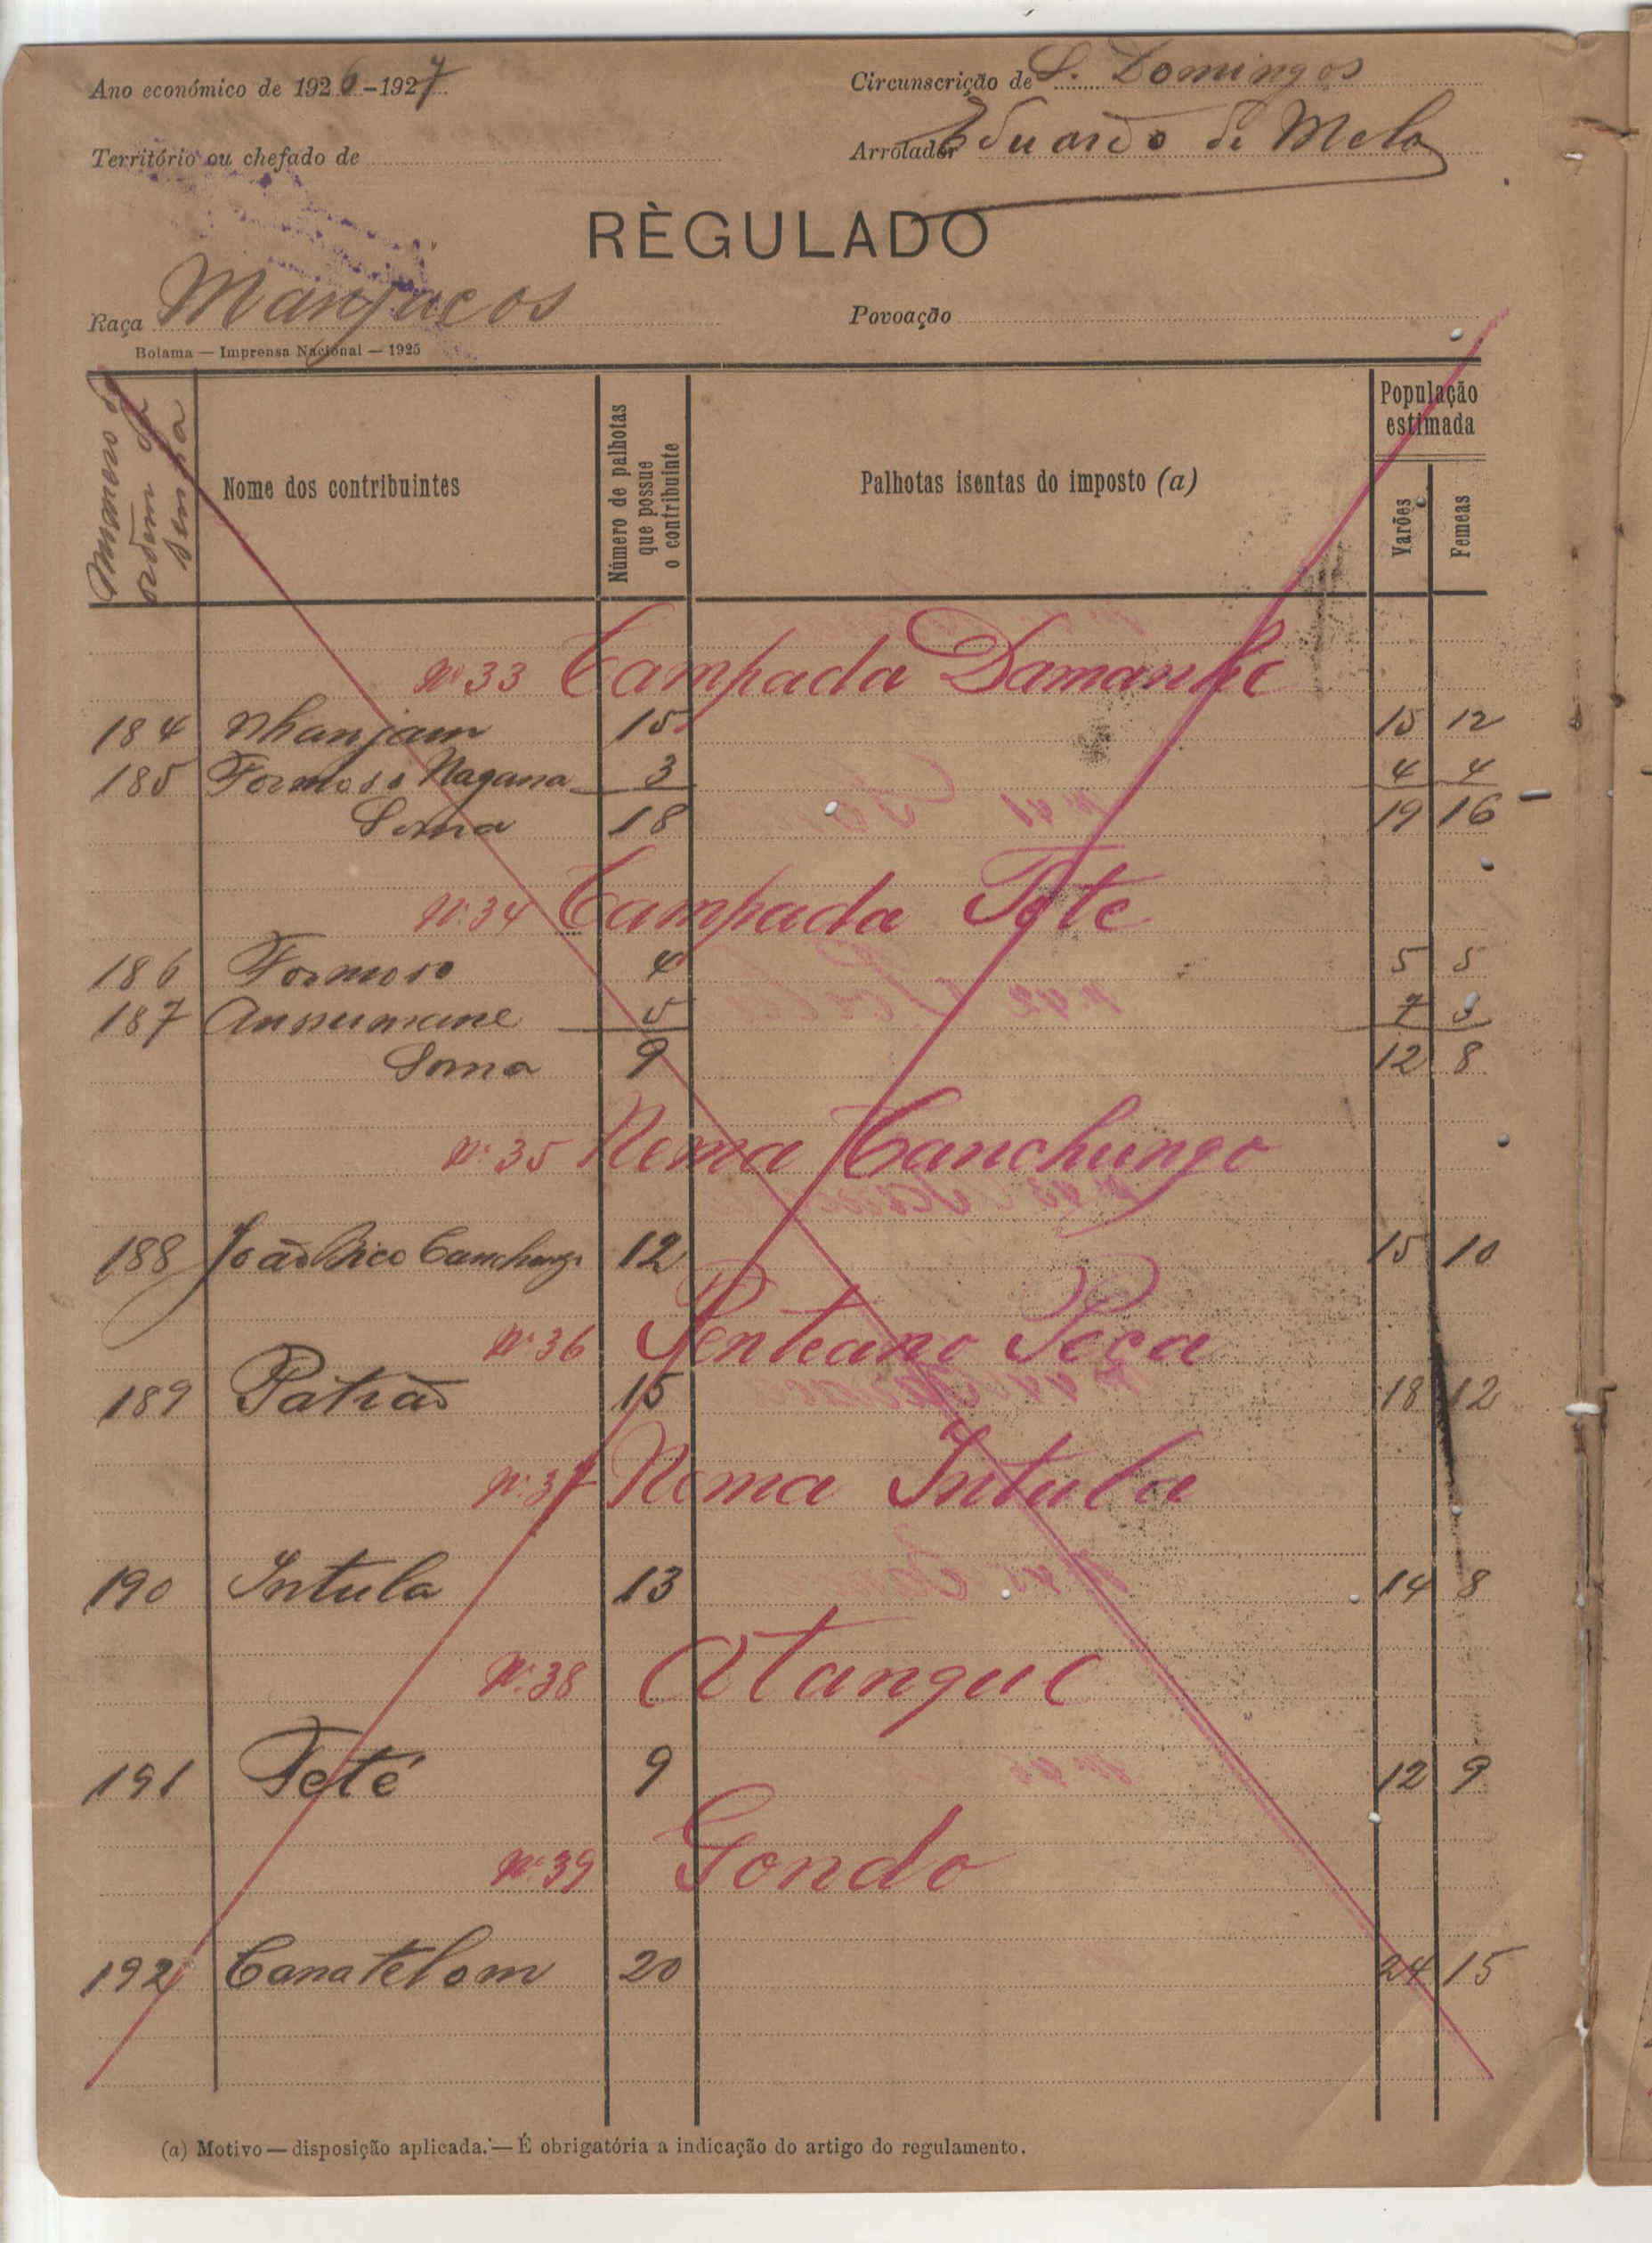 Ano económico de 1926-1927
Circunscrição de S. Domingos
Território ou chefado de
Arrolador Eduardo de Melo
RÈGULADO
Raça Manjacos
Povoação
Bolama — Imprensa Nacional — 1925
Numeros de ordem da
Nome dos contribuintes
Número de palhotas que possue o contribuinte
Palhotas isentas do imposto (a)
População estimada
Varões
Femeas
Nº 33 Campada Damanhe
184 Nhanjam 15 15 12
185 Formoso Nagana 3 4 4
Soma 18 19 16
Nº 34 Campada Tote
186 Formoso 4 5 5
187 Anssumane 5 7 3
Soma 9 12 8
Nº 35 Nema Canchungo
188 João Bico Canchungo 12 15 10
Nº 36 Penteano Peça
189 Patrão 15 18 12
Nº 37 Nema Intula
190 Intula 13 14 8
Nº 38 Atangue
191 Teté 9 12 9
Nº 39 Gondo
192 Canatelom 20 24 15
(a) Motivo — disposição aplicada. — É obrigatória a indicação do artigo do regulamento.